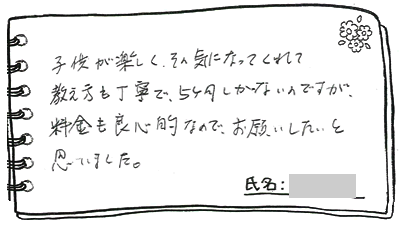 子供が楽しく、その気になってくれて
教え方も丁寧で、5ヶ月しかないのですが、
料金も良心的なので、お願いしたいと
思いました。
氏名: